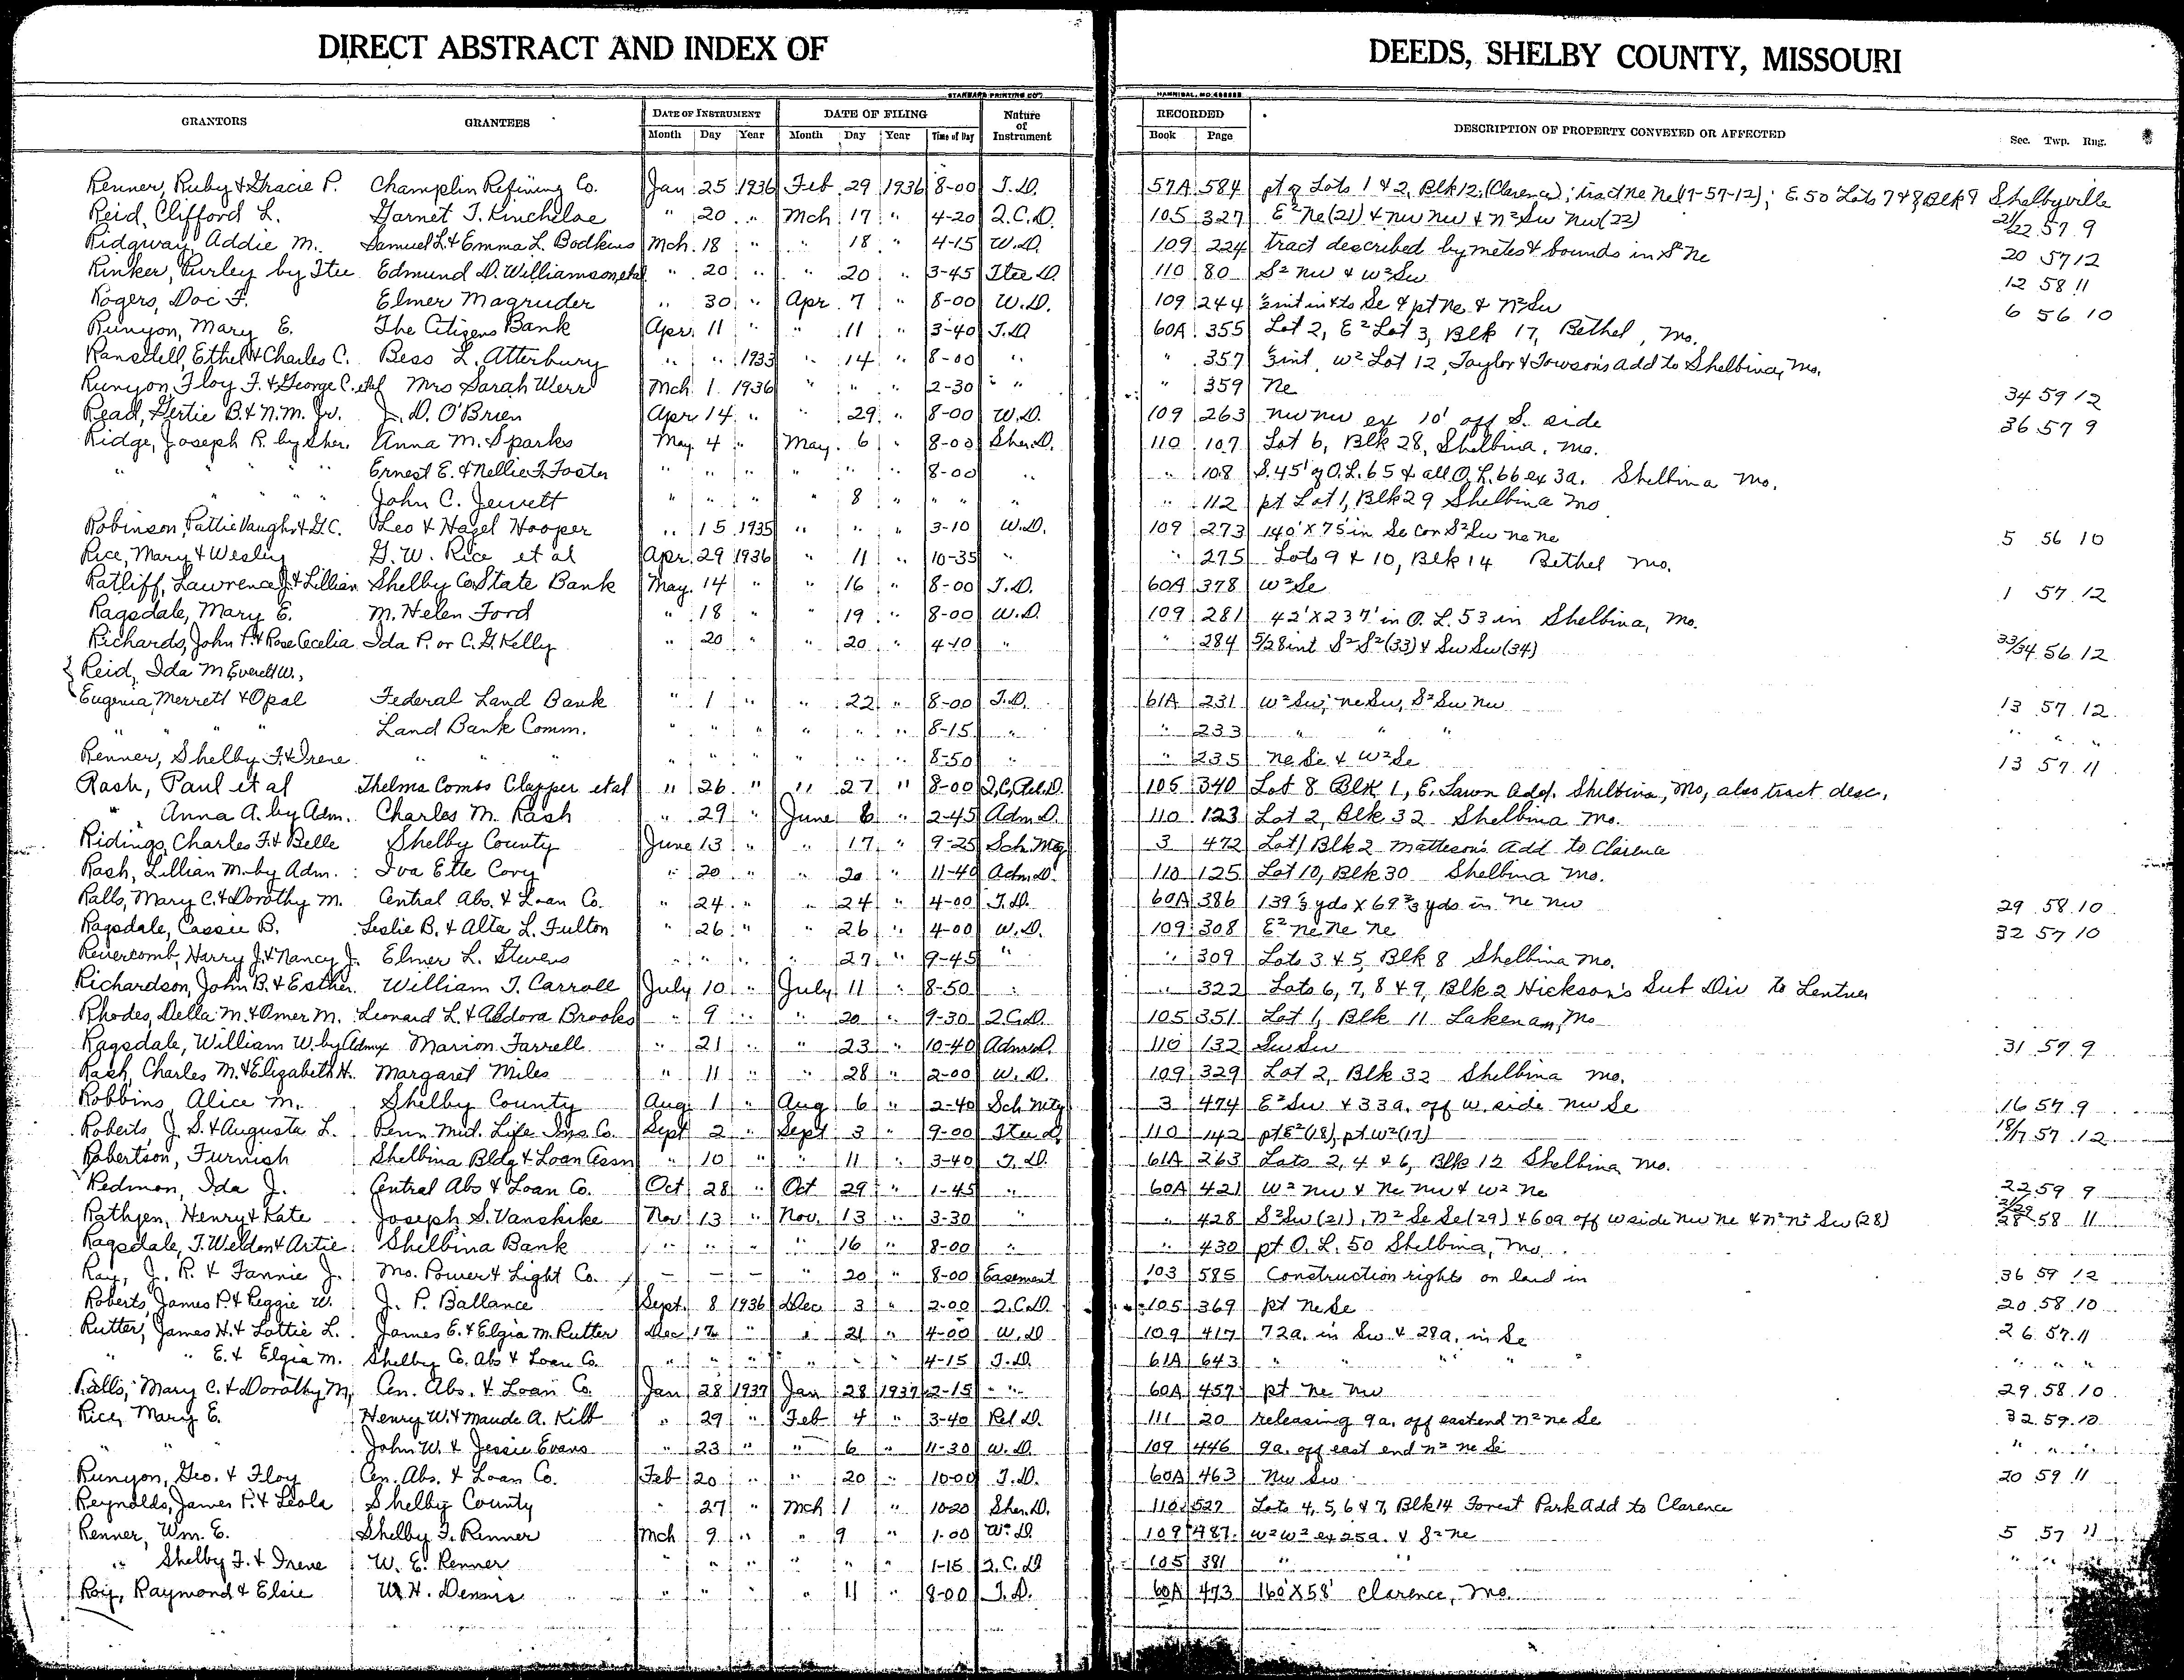 DIRECT ABSTRACT AND INDEX OF DEEDS, SHELBY COUNTY, MISSOURI
STANDARD PRINTING CO. HANNIBAL, MO.
GRANTORS GRANTEES DATE OF INSTRUMENT DATE OF FILING Nature of Instrument RECORDED DESCRIPTION OF PROPERTY CONVEYED OR AFFECTED Sec. Twp. Rng.
Month Day Year Month Day Year Time of Day Book Page
Renner, Ruby & Gracie P. Champlin Refining Co. Jan 25 1936 Feb 29 1936 8-00 T.D. 57A 584 pt of Lots 1 & 2, Blk 12, (Clarence); tract Ne Ne (7-57-12); E. 50' Lots 7 & 8 Blk 9 Shelbyville
Reid, Clifford L. Garnet T. Kincheloe " 20 " Mch 17 " 4-20 Q.C.D. 105 327 E² Ne (21) & nw nw & n² Sw nw (22) 21/22 57 9
Ridgway, Addie M. Samuel L. & Emma L. Bodkins Mch. 18 " " 18 " 4-15 W.D. 109 224 tract described by metes & bounds in S² Ne 20 57 12
Rinker, Purley by Stee Edmund D. Williamson, etal " 20 " " 20 " 3-45 Stee D. 110 80 S² nw & w² Sw 12 58 11
Rogers, Doc F. Elmer Magruder " 30 " Apr. 7 " 8-00 W.D. 109 244 Se & pt Ne & N² Sw 6 56 10
Runyon, Mary E. The Citizens Bank Apr. 11 " " 11 " 3-40 T.D. 60A 355 Lot 2, E² Lot 3, Blk 17, Bethel, Mo.
Ransdell, Ethel & Charles C. Bess L. Atterbury " " 1933 " 14 " 8-00 " " 357 w² Lot 12, Taylor & Towson's Add to Shelbina, Mo.
Runyon, Floy F. & George C. etal Mrs Sarah Werr Mch. 1 1936 " " " 2-30 " " " 359 Ne 34 59 12
Read, Gertie B. & N.M. Jr. J. D. O'Brien Apr 14 " " 29 " 8-00 W.D. 109 263 nw nw ex 10' off S. side 36 57 9
Ridge, Joseph R. by Sher. Anna M. Sparks May 4 " May 6 " 8-00 Sher.D. 110 107 Lot 6, Blk 28, Shelbina, Mo.
" " " " Ernest E. & Nellie F. Foster " " " " " " 8-00 " " 108 S. 45' of O.L. 65 & all O.L. 66 ex 3a. Shelbina Mo.
" " " John C. Jewett " " " " 8 " " " " 112 pt Lot 1, Blk 29 Shelbina Mo
Robinson, Pattie Vaughn & G.C. Leo & Hazel Hooper " 15 1935 " " " 3-10 W.D. 109 273 140' X 75' in Se Cor S² Sw ne ne 5 56 10
Rice, Mary & Wesley G. W. Rice et al Apr. 29 1936 " 11 " 10-35 " " 275 Lots 9 & 10, Blk 14 Bethel Mo.
Ratliff, Lawrence J. & Lillian Shelby Co. State Bank May. 14 " " 16 " 8-00 T.D. 60A 378 w² Se 1 57 12
Ragsdale, Mary E. M. Helen Ford " 18 " " 19 " 8-00 W.D. 109 281 42' X 237' in O. L. 53 in Shelbina, Mo.
Richards, John P. & Rose Cecelia Ida P. or C. G. Kelly " 20 " " 20 " 4-10 " " 284 5/28 int S² S² (33) & Sw Sw (34) 33/34 56 12
Reid, Ida M Everett W.,
Eugenia, Merrett & Opal Federal Land Bank " 1 " " 22 " 8-00 T.D. 61A 231 w² Sw; ne Sw, S² Sw nw 13 57 12
" " " Land Bank Comm. " " " " " " 8-15 " " 233 " " " " " "
Renner, Shelby F. & Irene " " " " " " " " 8-50 " " 235 ne Se & w² Se 13 57 11
Rash, Paul et al Thelma Combs Clapper etal " 26 " " 27 " 8-00 Q.C. Rel.D. 105 340 Lot 8 Blk 1, E. Lawn Add. Shelbina, Mo, also tract desc.
" Anna A. by Adm. Charles M. Rash " 29 " June 6 " 2-45 Adm D. 110 123 Lot 2, Blk 32 Shelbina Mo.
Ridings, Charles F. & Belle Shelby County June 13 " " 17 " 9-25 Sch. Mtg 3 472 Lot 1 Blk 2 Matteson's Add to Clarence
Rash, Lillian M. by Adm. Iva Etta Cory " 20 " " 20 " 11-40 Adm D. 110 125 Lot 10, Blk 30 Shelbina Mo.
Ralls, Mary C. & Dorothy M. Central Abs. & Loan Co. " 24 " " 24 " 4-00 T.D. 60A 386 139⅓ yds X 69⅔ yds in Ne nw 29 58 10
Ragsdale, Cassie B. Leslie B. & Alta L. Fulton " 26 " " 26 " 4-00 W.D. 109 308 E² ne ne ne 32 57 10
Revercomb, Harry J. & Nancy J. Elmer L. Stevens " " " " 27 " 9-45 " " 309 Lots 3 & 5, Blk 8 Shelbina Mo.
Richardson, John B. & Esther William T. Carroll July 10 " July 11 " 8-50 " " 322 Lots 6, 7, 8 & 9, Blk 2 Hickson's Sub Div to Lentner
Rhodes, Della M. & Omer M. Leonard L. & Aldora Brooks " 9 " " 20 " 9-30 Q.C.D. 105 351 Lot 1, Blk 11 Lakenan, Mo
Ragsdale, William W. by Admx Marion Farrell " 21 " " 23 " 10-40 Adm D. 110 132 Sw Sw 31 57 9
Rash, Charles M. & Elizabeth H. Margaret Miles " 11 " " 28 " 2-00 W.D. 109 329 Lot 2, Blk 32 Shelbina Mo.
Robbins, Alice M. Shelby County Aug 1 " Aug 6 " 2-40 Sch Mtg 3 474 E² Sw & 33a. off w. side nw Se 16 57 9
Roberts, J. S. & Augusta L. Penn Mut. Life Ins. Co. Sept 2 " Sept 3 " 9-00 Stee D. 110 142 pt E² (18), pt w² (17) 18/17 57 12
Robertson, Furnish Shelbina Bldg & Loan Assn " 10 " " 11 " 3-40 T.D. 61A 263 Lots 2, 4 & 6, Blk 12 Shelbina Mo.
Redmon, Ida J. Central Abs & Loan Co. Oct 28 " Oct 29 " 1-45 " 60A 421 w² nw & ne nw & w² ne 22 59 9
Rathjen, Henry & Kate Joseph S. Vanskike Nov 13 " Nov. 13 " 3-30 " " 428 S² Sw (21), n² Se Se (29) & 60a off w side nw ne & n² n² Sw (28) 21/29 28 58 11
Ragsdale, T. Weldon & Artie Shelbina Bank " " " " 16 " 8-00 " " 430 pt O. L. 50 Shelbina, Mo.
Ray, J. R. & Fannie J. Mo. Power & Light Co. — — — " 20 " 8-00 Easement 103 585 Construction rights on land in 36 59 12
Roberts, James P. & Peggie W. J. P. Ballance Sept. 8 1936 Dec 3 " 2-00 Q.C.D. 105 369 pt ne Se 20 58 10
Rutter, James H. & Lottie L. James E. & Elgia M. Rutter Dec 17 " " 21 " 4-00 W.D 109 417 72a. in Sw & 28a. in Se 26 57 11
" " E. & Elgia M. Shelby Co. Abs & Loan Co. " " " " " " 4-15 T.D. 61A 643 " " " " " " " "
Ralls, Mary C. & Dorothy M. Cen. Abs. & Loan Co. Jan 28 1937 Jan 28 1937 2-15 " " 60A 457 pt ne nw 29 58 10
Rice, Mary E. Henry W. & Maude A. Kilb " 29 " Feb 4 " 3-40 Rel D. 111 20 releasing 9a. off east end n² ne Se 32 59 10
" " John W. & Jessie Evans " 23 " " 6 " 11-30 W.D. 109 446 9a. off east end n² ne Se " " "
Runyon, Geo. & Floy Cen. Abs. & Loan Co. Feb 20 " " 20 " 10-00 T.D. 60A 463 nw Sw 20 59 11
Reynolds, James P. & Leola Shelby County " 27 " Mch 1 " 10-20 Sher.D. 110 527 Lots 4, 5, 6 & 7, Blk 14 Forest Park Add to Clarence
Renner, Wm. E. Shelby F. Renner Mch 9 " " 9 " 1-00 W.D 109 487 w² w² ex 25a. & S² ne 5 57 11
" Shelby F. & Irene W. E. Renner " " " " " " 1-15 Q.C.D 105 381 " " " " "
Roy, Raymond & Elsie W. H. Dennis " " " " 11 " 8-00 T.D. 60A 473 160' X 58' Clarence, Mo.